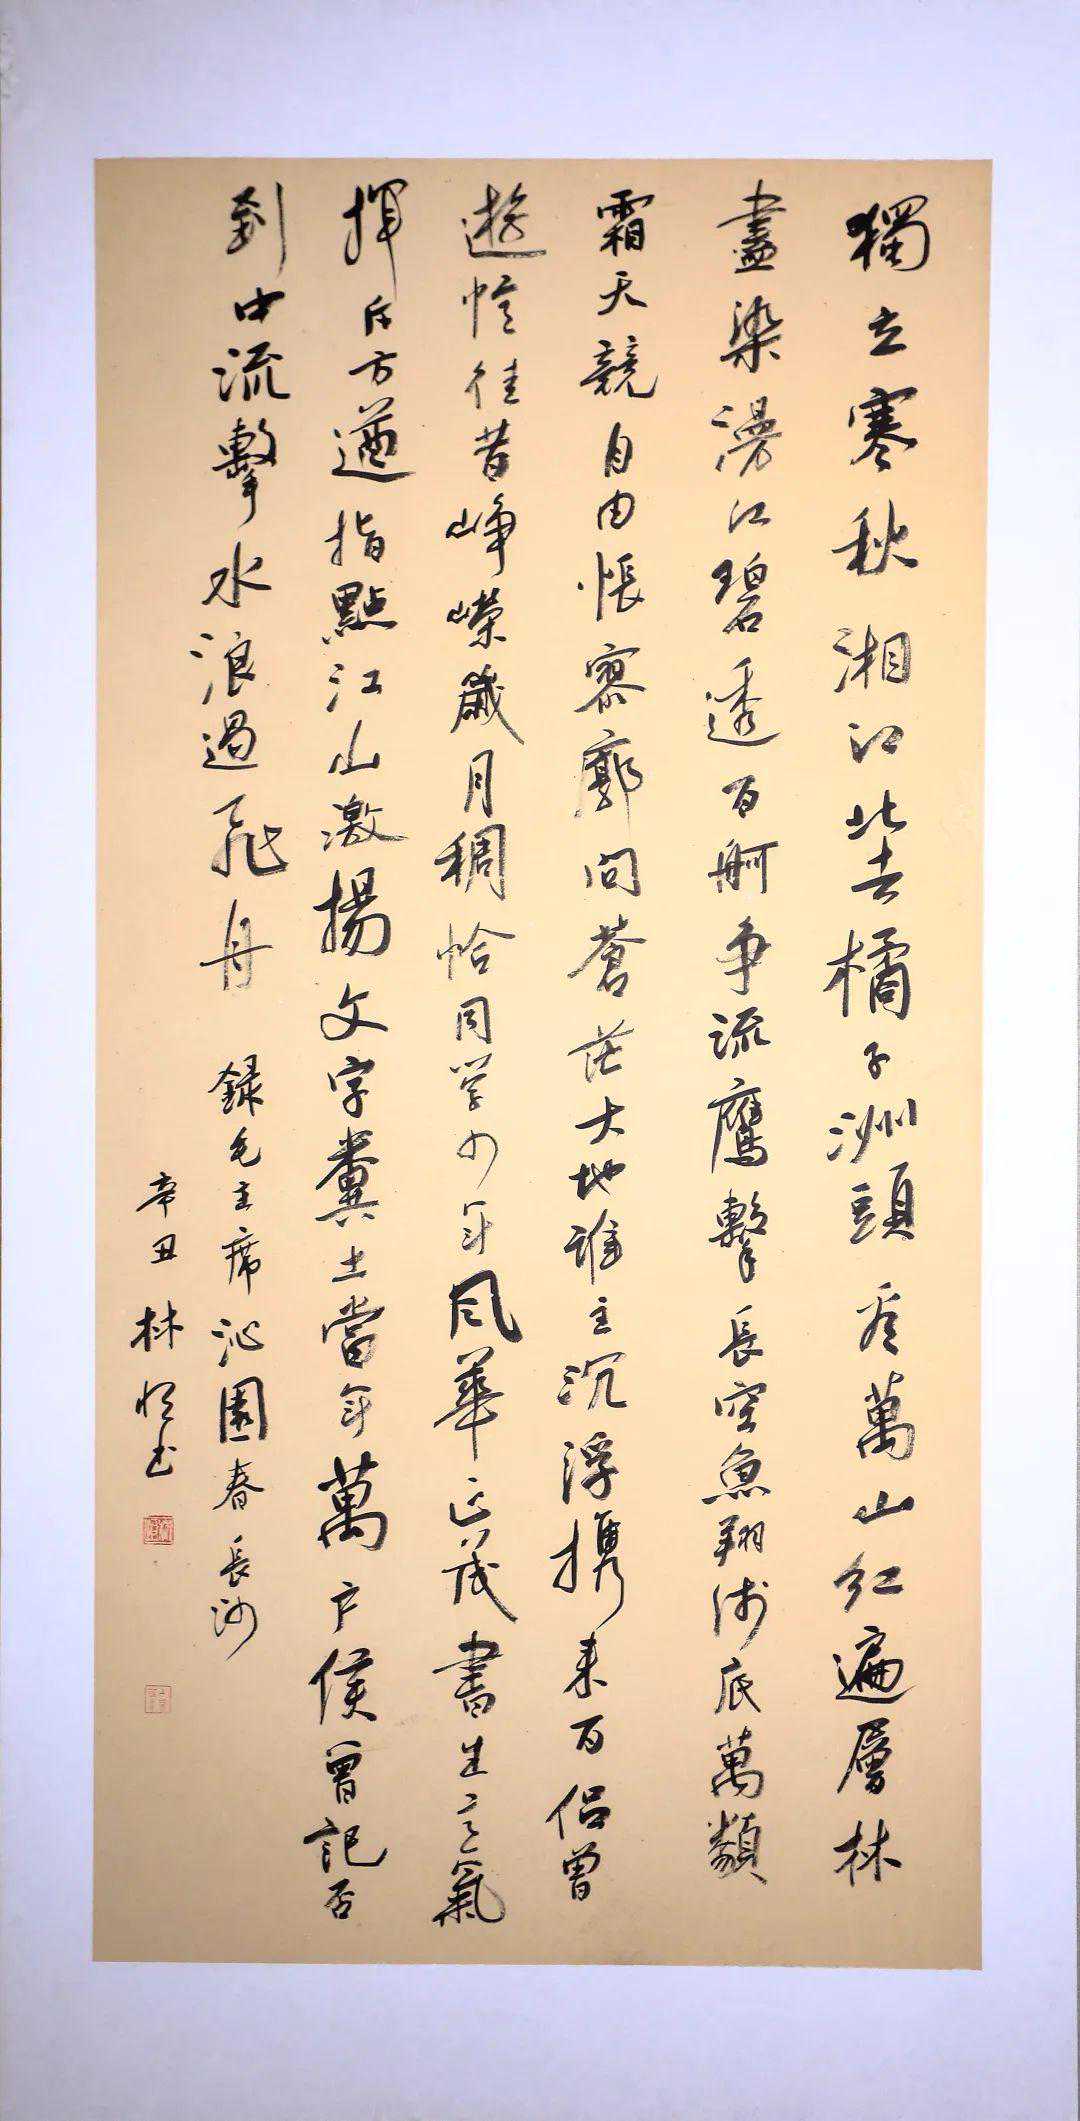 獨立寒秋湘江北去橘子洲頭看萬山紅遍層林
盡染漫江碧透百舸争流鷹擊長空魚翔淺底萬類
霜天競自由悵寥廓問蒼茫大地誰主沉浮携来百侣曾
遊憶往昔崢嶸歲月稠恰同學少年風華正茂書生意氣
揮斥方遒指點江山激揚文字糞土當年萬户侯曾記否
到中流擊水浪遏飛舟
録毛主席沁園春長沙
辛丑林恒书